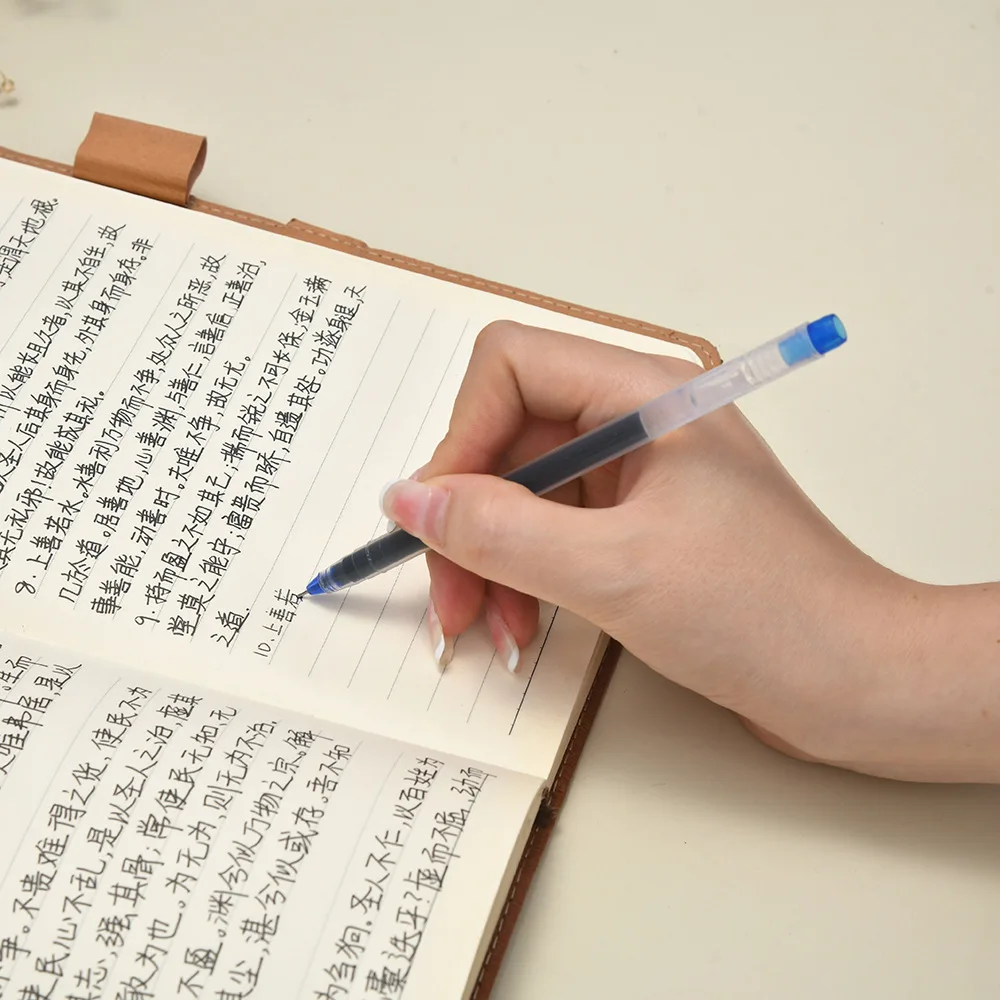 生而
夫唯弗居,是以
争。不贵难得之货,使民不为
使民心不乱,是以圣人之治,虚其
其志,强其骨;常使民无知无
敢为也。为无为,则无为不治。
不盈。渊兮似万物之宗。解
其尘,湛兮似或存。吾不知
为刍狗。圣人不仁,以百姓为
虚而不屈,动而
是谓天地根。
所以能长且久者,以其不自生,故
圣人后其身而身先,外其身而身存。非
其无私邪!故能成其私。
8.上善若水。水善利万物而不争,处众人之所恶,故
几於道。居善地,心善渊,与善仁,言善信,正善治,
事善能,动善时。夫唯不争,故无尤。
9.持而盈之不如其己;揣而锐之不可长保,金玉满
堂莫之能守;富贵而骄,自遗其咎。功遂身退,天
之道.
10.上善若